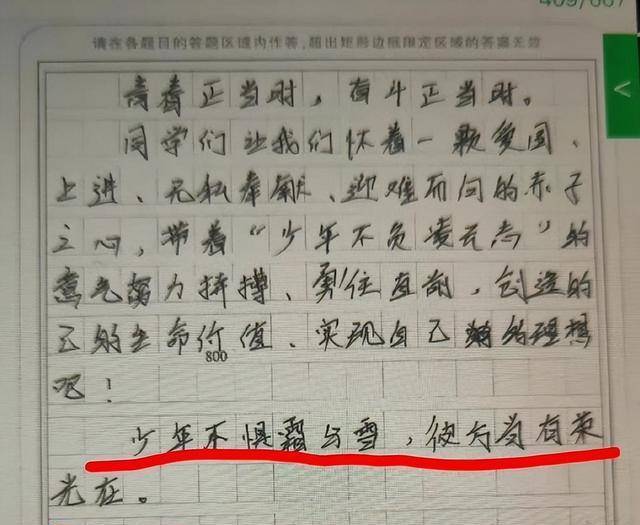 409/667
请在各题目的答题区域内作答,超出矩形边框限定区域的答案无效
青春正当时，奋斗正当时。
同学们让我们怀着一颗爱国、
上进、无私奉献、迎难而向的赤子
之心，带着“少年不负凌云志”的
意气努力拼搏、勇往直前，创造的
己的生命价值、实现自己的理想
800
吧！
少年不惧霜与雪，彼方尚有荣
光在。